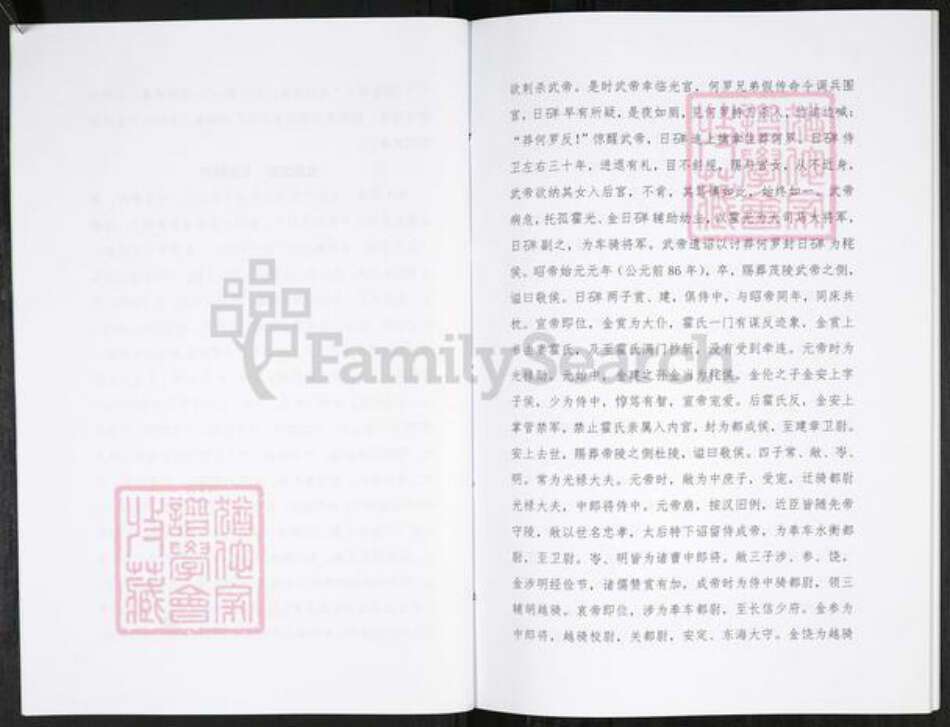 欲刺杀武帝。是时武帝幸临光宫，何罗兄弟假传命令调兵围
宫，日磾早有所疑，是夜如厕，见何罗持刀
“莽何罗反！”惊醒武帝，日磾 莽何罗。日磾侍
卫左右三十年，进退有礼，目不斜视，赐与宫女，从不近身，
武帝欲纳其女入后宫，不肯，其笃慎如此，始终如一。武帝
病危，托孤霍光、金日磾辅助幼主，以霍光为大司马大将军，
日磾副之，为车骑将军。武帝遗诏以讨莽何罗封日磾为秺
侯。昭帝始元元年（公元前86年），卒，赐葬茂陵武帝之侧，
谥曰敬侯。日磾两子赏、建，俱侍中，与昭帝同年，同床共
枕。宣帝即位，金赏为大仆，霍氏一门有谋反迹象，金赏上
书 霍氏，及至霍氏满门抄斩，没有受到牵连。元帝时为
光禄勋。元始中，金 之孙金当为秺侯。金伦之子金安上字
子侯，少为侍中，惇笃有智，宣帝宠爱。后霍氏反，金安上
掌管禁军，禁止霍氏亲属入内宫，封为都成侯，至建章卫尉。
安上去世，赐葬帝陵之侧杜陵，谥曰敬侯。四子常、敞、岑、
明。常为光禄大夫。元帝时，敞为中庶子，受宠，迁骑都尉
光禄大夫，中郎将侍中。元帝崩，按汉旧例，近臣皆随先帝
守陵，敞以世名忠孝，太后特下诏留侍成帝，为奉车水衡都
尉，至卫尉。岑、明皆为诸曹中郎将。敞三子涉、参、饶。
金涉明经俭节，诸儒赞赏有加，成帝时为侍中骑都尉，领三
辅胡越骑。哀帝即位，涉为奉车都尉，至长信少府。金参为
中郎将，越骑校尉，关都尉，安定、东海大守。金饶为越骑
FamilySearch